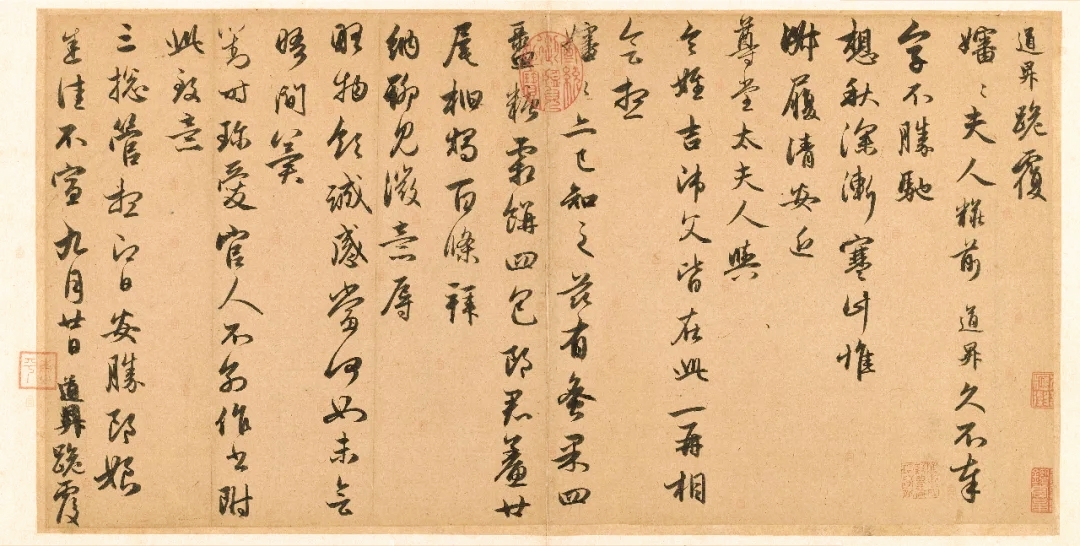 道昇跪覆
嬸〻夫人粧前 道昇久不奉
字不勝馳
想秋深漸寒計惟
淑履清安近
尊堂太夫人與
令姪吉師父皆在此一再相
會想
嬸〻亦已知之茲有蜜果四
盝糖霜餅四包郎君鯗廿
尾柏燭百條拜
納聊見微意辱
略物領誠感當何如未會
晤間冀
對時珍愛官人不別作書附
此致意
三總管想即日安勝郎娘
悉佳不宣九月廿日 道昇跪覆